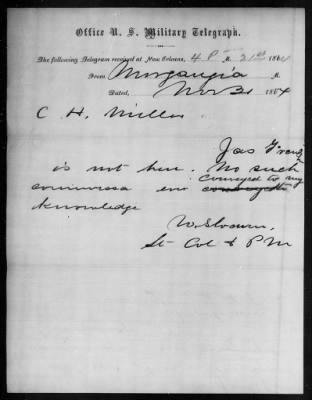 Office U. S. Military Telegraph.
The following Telegram received at New Orleans, 4 P M. 21st 1864
From Morganzia M.
Dated, Nov 21 1864
C H. Miller
Jas
is not here. No such
conveyed to my
knowledge
Lt Col & P M